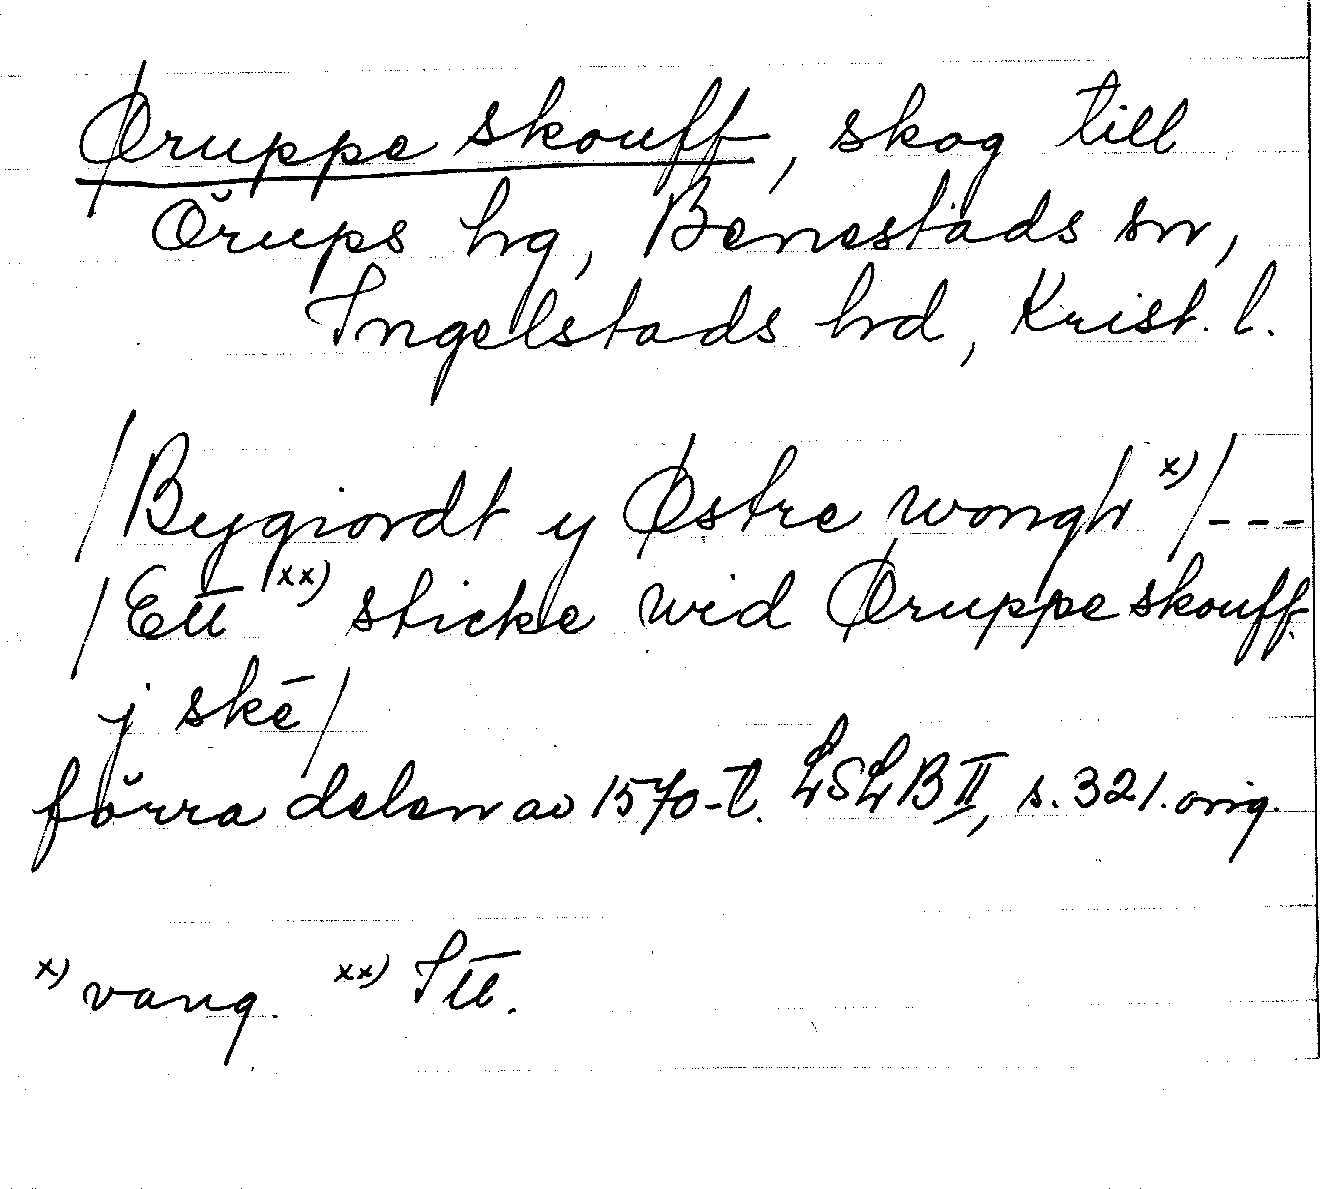 Øruppe skouff, skog till
Örups hg, Benestads sn,
Ingelstads hrd, Krist. l.
/Bygiordt y Østre wongh x)/---
/Ett xx) sticke wid Øruppe skouff.
j skē/
förra delen av 1570-t. LSLB II, s. 321. orig.
x) vang. xx) Itt.